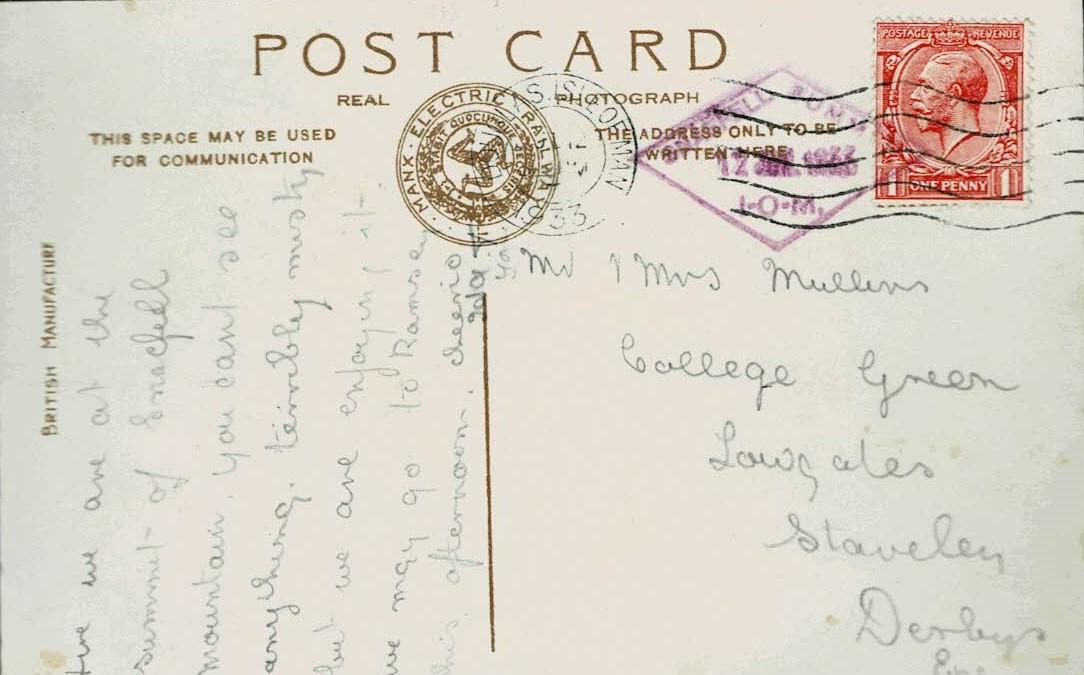 POST CARD
REAL PHOTOGRAPH
THIS SPACE MAY BE USED
FOR COMMUNICATION
THE ADDRESS ONLY TO BE
WRITTEN HERE
BRITISH MANUFACTURE
MANX ELECTRIC RAILWAY CO
QUOCUNQUE
IS. OF MAN
33
SUMMIT
12 1933
I-O-M.
POSTAGE REVENUE
1 ONE PENNY 1
we are at the
summit of Snaefell
mountain. You cant see
anything. terribly misty
but we are enjoying it.
we may go to Ramsey
this afternoon. cheerio
Mr & Mrs Mullins
College Green
Lowgates
Staveley
Derbys